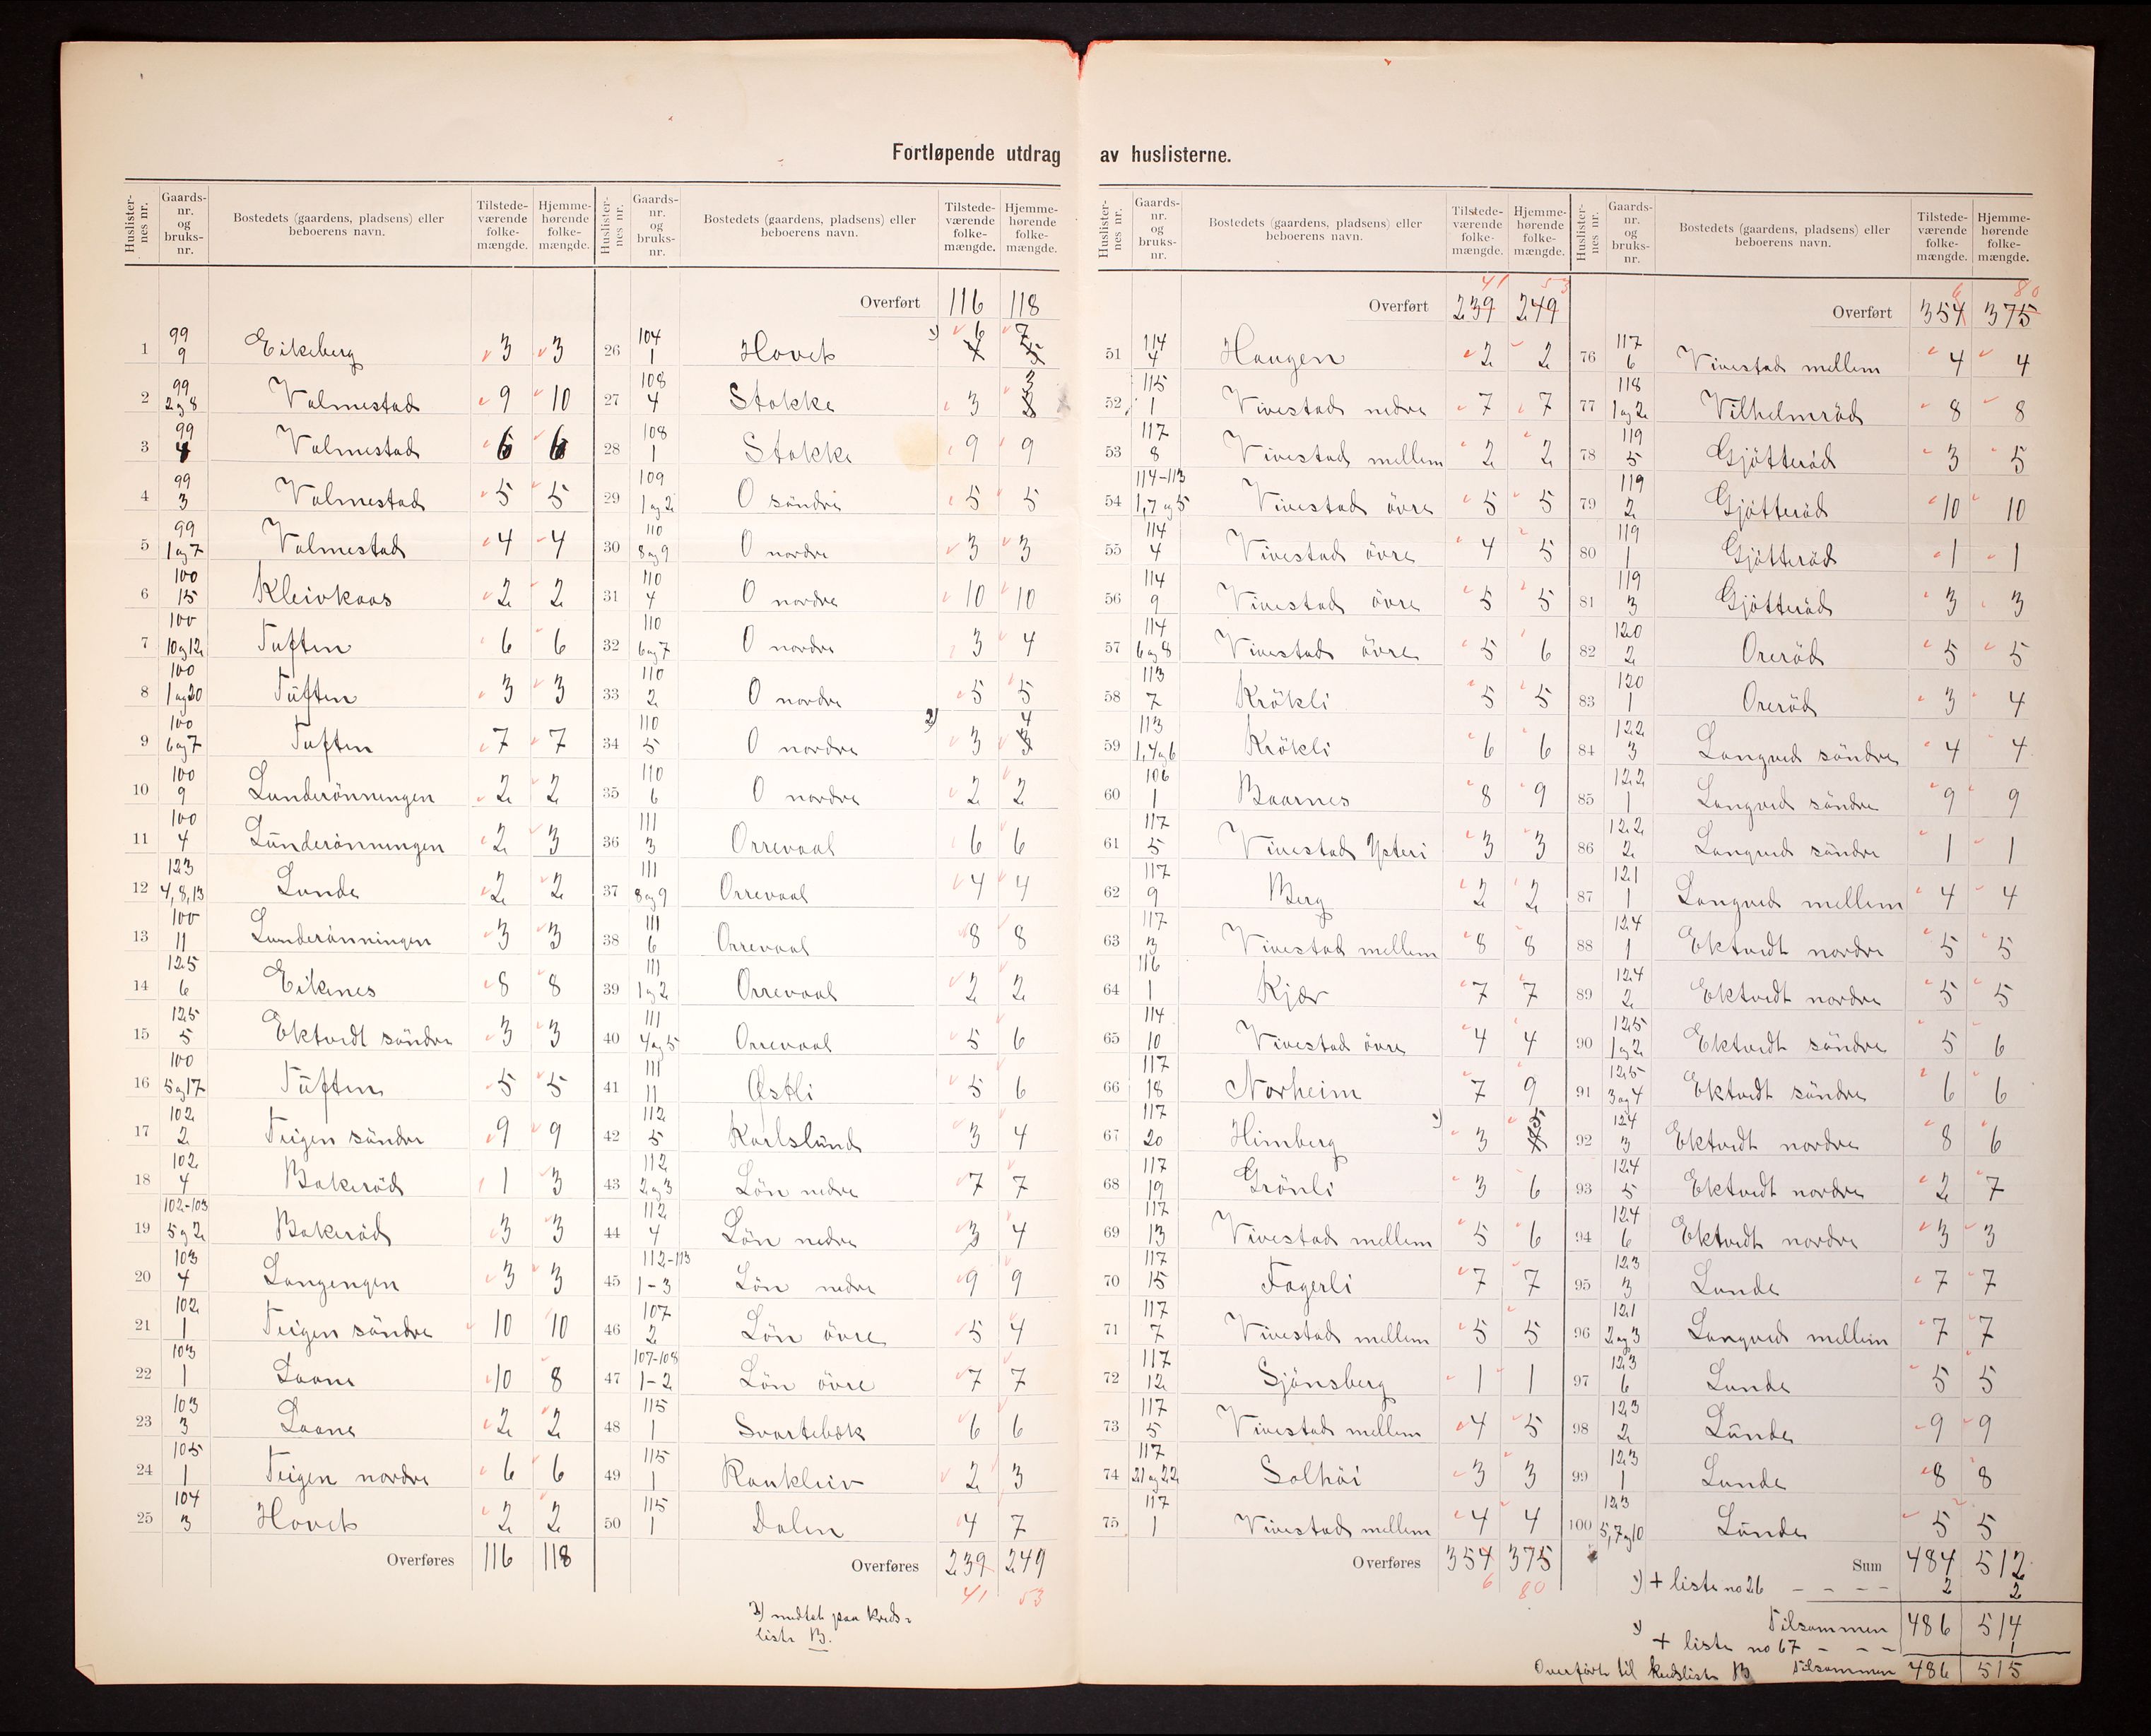 Fortløpende utdrag av huslisterne.
Huslisternes nr. Gaards-nr. og bruks-nr. Bostedets (gaardens, pladsens) eller beboerens navn. Tilstede-værende folke-mængde. Hjemme-hørende folke-mængde.
1 99 9 Eikeberg 3 3
2 99 2 og 8 Valmestad 9 10
3 99 4 Valmestad 6 6
4 99 3 Valmestad 5 5
5 99 1 og 7 Valmestad 4 4
6 100 15 Kleivkaas 2 2
7 100 10 og 12 Tuften 6 6
8 100 1 og 20 Tuften 3 3
9 100 6 og 7 Tuften 7 7
10 100 9 Lunderönningen 2 2
11 100 4 Lunderönningen 2 3
12 123 4, 8, 13 Lunde 2 2
13 100 11 Lunderönningen 3 3
14 125 6 Eikenes 8 8
15 125 5 Ektvedt söndre 3 3
16 100 5 og 17 Tuften 5 5
17 102 2 Teigen söndre 9 9
18 102 4 Bakeröd 1 3
19 102-103 5 og 2 Bakeröd 3 3
20 103 4 Langengen 3 3
21 102 1 Teigen söndre 10 10
22 103 1 Laane 10 8
23 103 3 Laane 2 2
24 105 1 Teigen nordre 6 6
25 104 3 Hovet 2 2
Overføres 116 118
Huslisternes nr. Gaards-nr. og bruks-nr. Bostedets (gaardens, pladsens) eller beboerens navn. Tilstede-værende folke-mængde. Hjemme-hørende folke-mængde.
Overført 116 118
26 104 1 Hovet 1) 6 7
27 108 4 Stokke 3 3
28 108 1 Stokke 9 9
29 109 1 og 2 O söndre 5 5
30 110 8 og 9 O nordre 3 3
31 110 4 O nordre 10 10
32 110 6 og 7 O nordre 3 4
33 110 2 O nordre 5 5
34 110 5 O nordre 2) 3 4
35 110 6 O nordre 2 2
36 111 3 Orrevaal 6 6
37 111 8 og 9 Orrevaal 4 4
38 111 6 Orrevaal 8 8
39 111 1 og 2 Orrevaal 2 2
40 111 4 og 5 Orrevaal 5 6
41 111 11 Østli 5 6
42 112 5 Karlslund 3 4
43 112 2 og 3 Lön nedre 7 7
44 112 4 Lön nedre 3 4
45 112-113 1-3 Lön nedre 9 9
46 107 2 Lön övre 5 4
47 107-108 1-2 Lön övre 7 7
48 115 1 Svartebök 6 6
49 115 1 Raukleiv 2 3
50 115 1 Dalen 4 7
Overføres 239 249
41 53
2) medtat paa kreds=
liste B.
Huslisternes nr. Gaards-nr. og bruks-nr. Bostedets (gaardens, pladsens) eller beboerens navn. Tilstede-værende folke-mængde. Hjemme-hørende folke-mængde.
41 53
Overført 239 249
51 114 4 Haugen 2 2
52 115 1 Vivestad nedre 7 7
53 117 8 Vivestad mellem 2 2
54 114-113 1, 7 og 5 Vivestad övre 5 5
55 114 4 Vivestad övre 4 5
56 114 9 Vivestad övre 5 5
57 114 6 og 8 Vivestad övre 5 6
58 113 7 Krökli 5 5
59 113 1, 4 og 6 Krökli 6 6
60 106 1 Baarnes 8 9
61 117 5 Vivestad Ysteri 3 3
62 117 9 Berg 2 2
63 117 3 Vivestad mellem 8 8
64 116 1 Kjær 7 7
65 114 10 Vivestad övre 4 4
66 117 18 Norheim 7 9
67 117 20 Himberg 3
68 117 19 Grönli 3 6
69 117 13 Vivestad mellem 5 6
70 117 15 Fagerli 7 7
71 117 7 Vivestad mellem 5 5
72 117 12 Sjönsberg 1 1
73 117 5 Vivestad mellem 4 5
74 117 21 og 22 Solhöi 3 3
75 117 1 Vivestad mellem 4 4
Overføres 354 375
6 80
Huslisternes nr. Gaards-nr. og bruks-nr. Bostedets (gaardens, pladsens) eller beboerens navn. Tilstede-værende folke-mængde. Hjemme-hørende folke-mængde.
6 80
Overført 354 375
76 117 6 Vivestad mellem 4 4
77 118 1 og 2 Vilhelmröd 8 8
78 119 5 Gjötteröd 3 5
79 119 2 Gjötteröd 10 10
80 119 1 Gjötteröd 1 1
81 119 3 Gjötteröd 3 3
82 120 2 Oreröd 5 5
83 120 1 Oreröd 3 4
84 122 3 Langved söndre 4 4
85 122 1 Langved söndre 9 9
86 122 2 Langved söndre 1 1
87 121 1 Langved mellem 4 4
88 124 1 Ektvedt nordre 5 5
89 124 2 Ektvedt nordre 5 5
90 125 1 og 2 Ektvedt söndre 5 6
91 125 3 og 4 Ektvedt söndre 6 6
92 124 3 Ektvedt nordre 8 6
93 124 5 Ektvedt nordre 2 7
94 124 6 Ektvedt nordre 3 3
95 123 3 Lunde 7 7
96 121 2 og 3 Langved mellem 7 7
97 123 6 Lunde 5 5
98 123 2 Lunde 9 9
99 123 1 Lunde 8 8
100 123 5, 7 og 10 Lunde 5 5
Sum 484 512
1) + liste no 26 - - - - 2 2
Tilsammen 486 514
+ liste no 67 - - - 1
Overført til kredsliste B Tilsammen 486 515